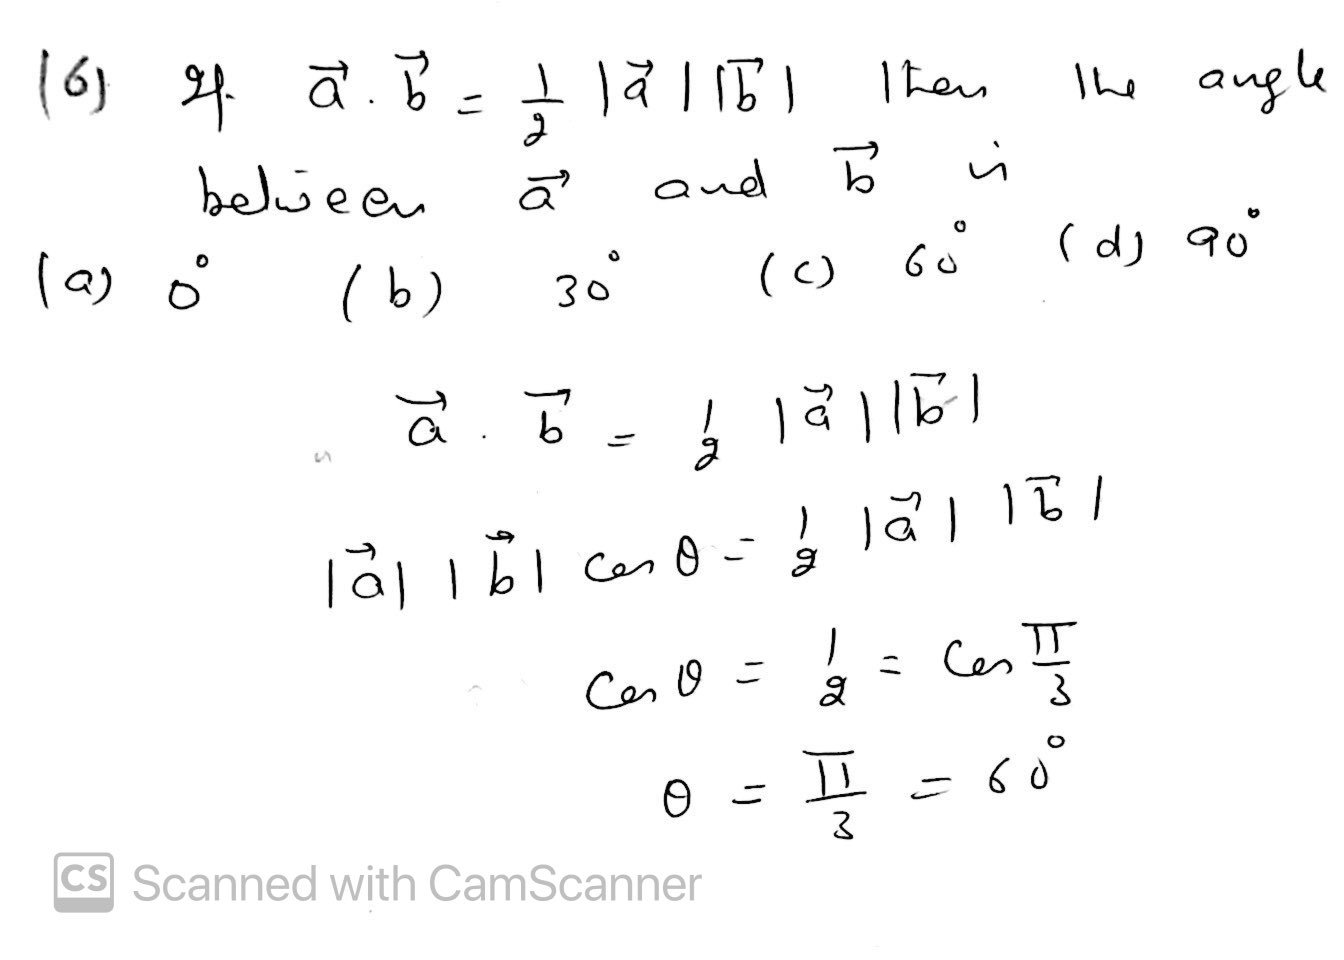 (6) If a⃗ . b⃗ = 1/2 |a⃗| |b⃗| then the angle
between a⃗ and b⃗ is
(a) 0° (b) 30° (c) 60° (d) 90°
a⃗ . b⃗ = 1/2 |a⃗| |b⃗|
|a⃗| |b⃗| cos θ = 1/2 |a⃗| |b⃗|
cos θ = 1/2 = cos π/3
θ = π/3 = 60°
CS Scanned with CamScanner